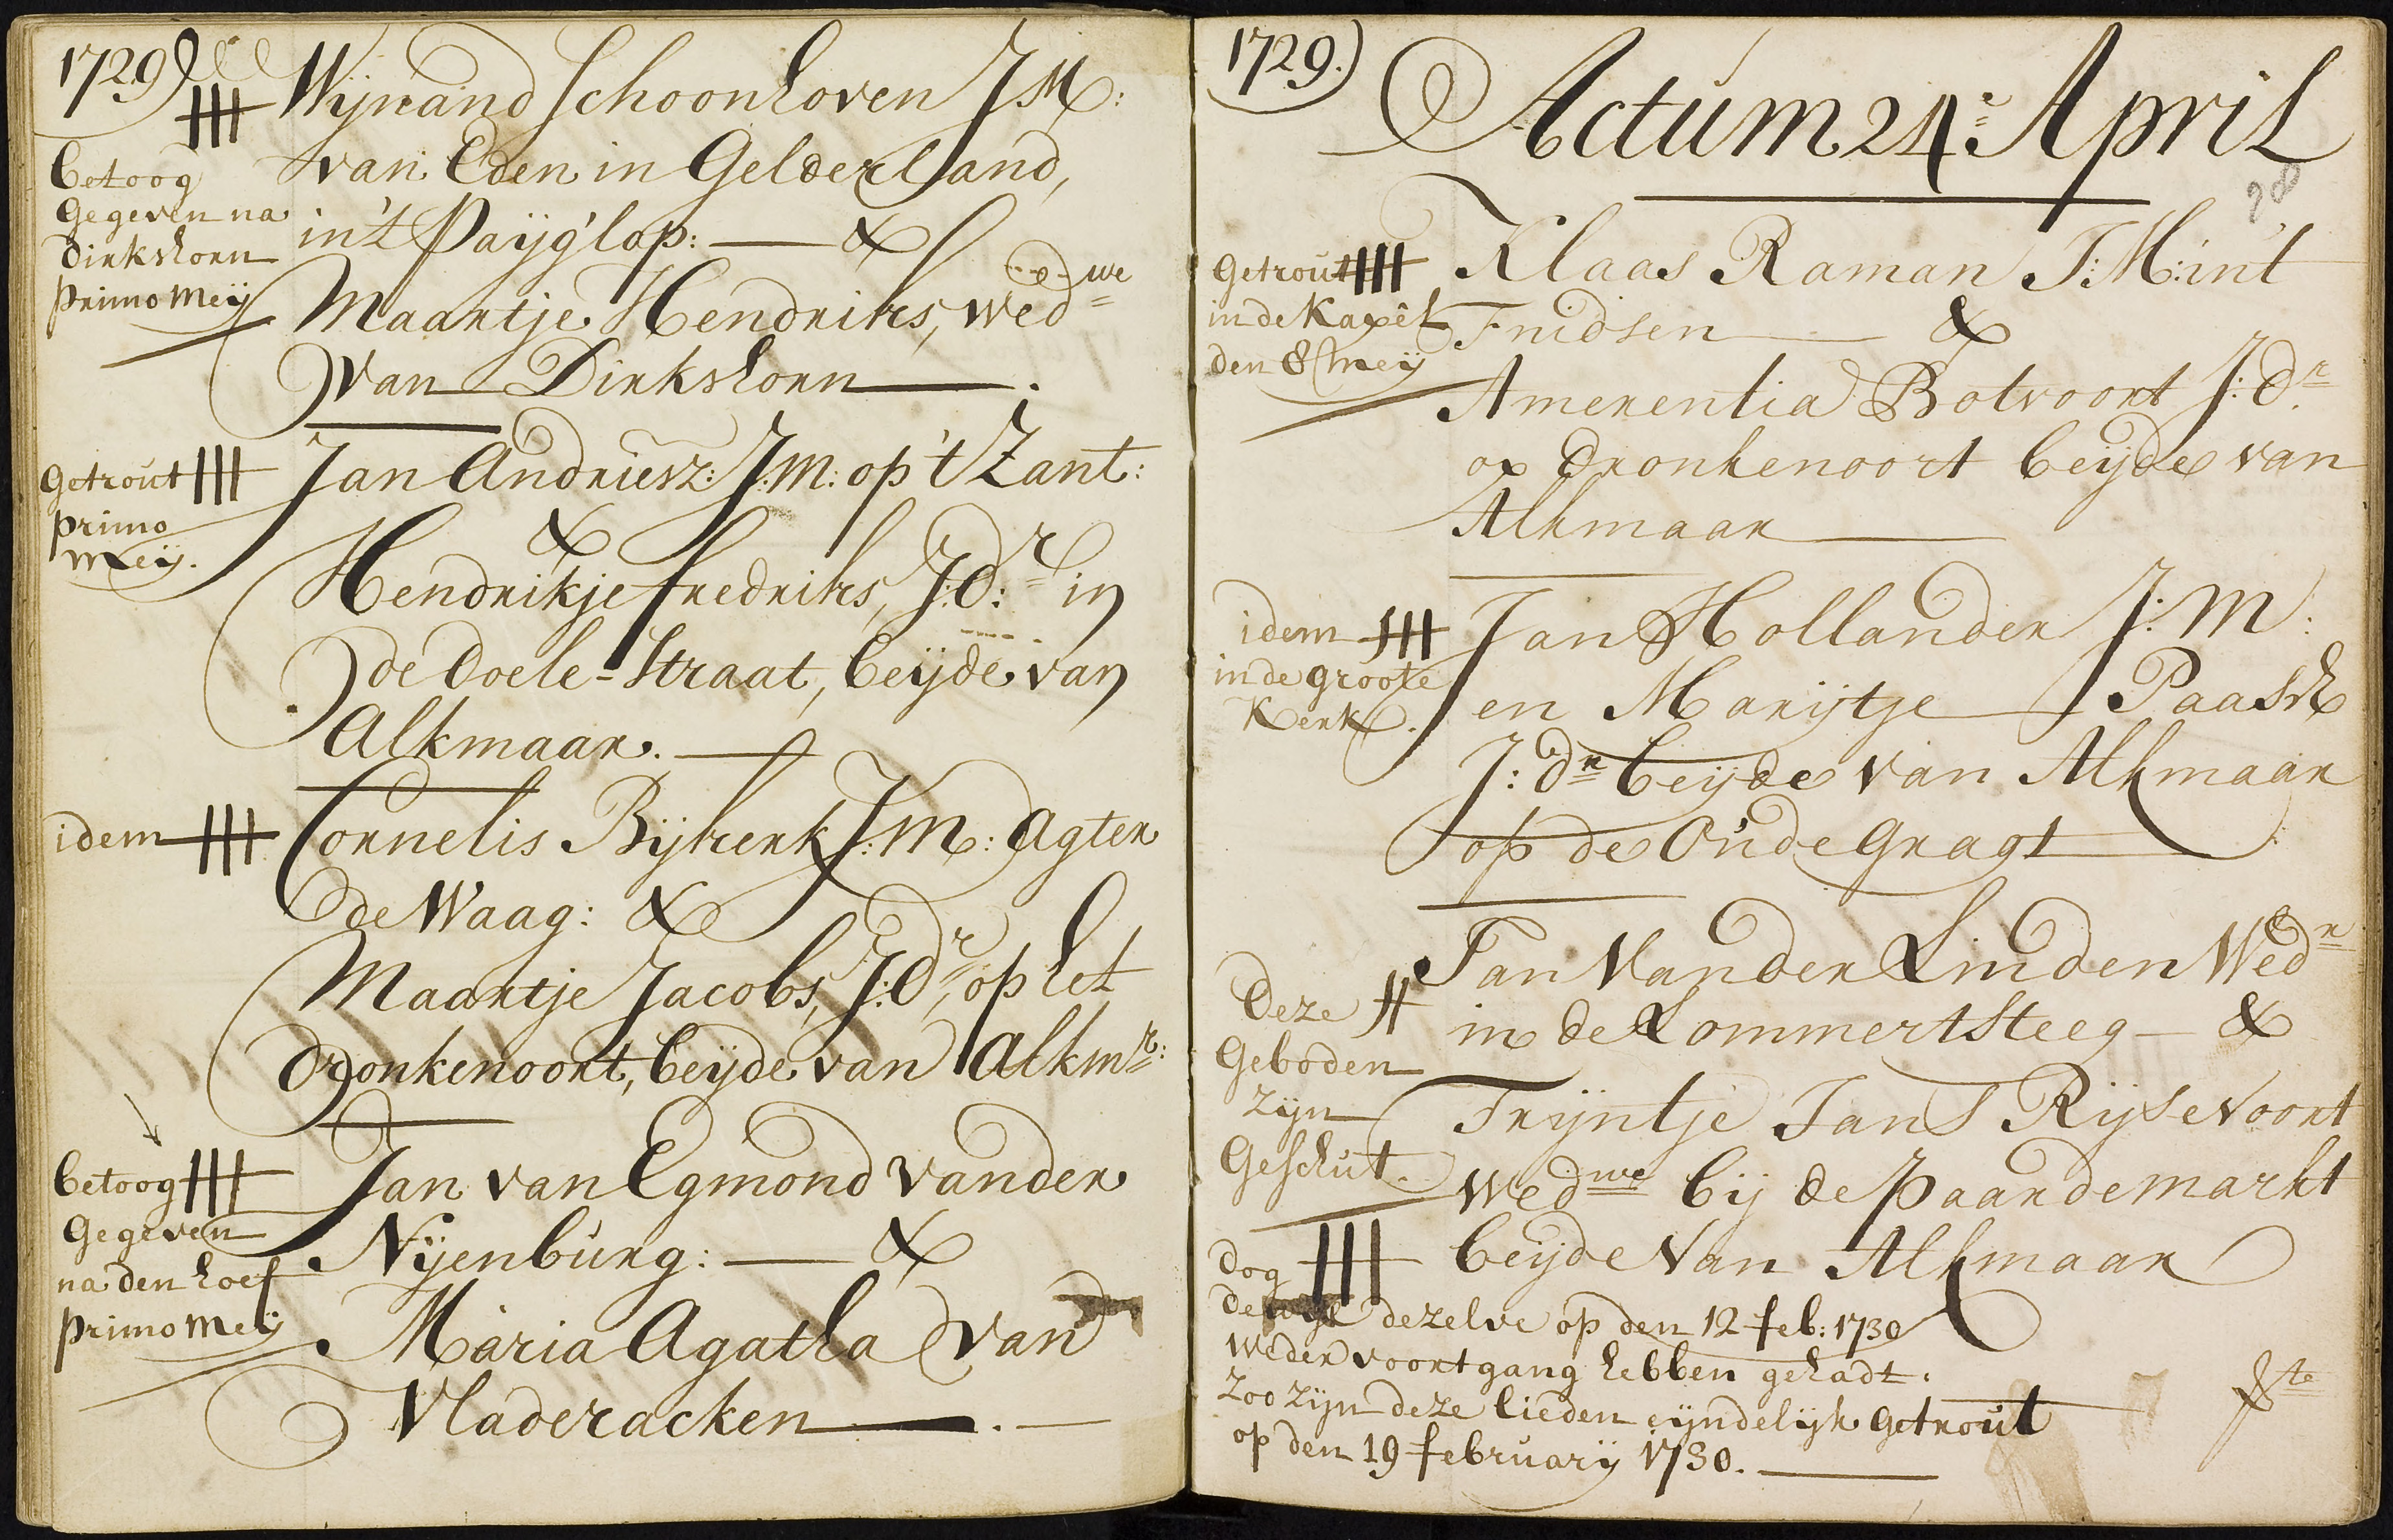 1729)
Wijnand Schoonhoven J:M:
van Eden in Gelderland,
in't Paijg'lop: — &
Maartje Hendriks, wed.we
van Dirkshorn — .
betoog
Gegeven na
dirkshorn
primo Meij
Jan Andriesz: J:M: op 't Zant:
&
Hendrikje fredriks, J:d:r in
de doele-Straat, beijde van
Alkmaar. —
getrout
primo
Meij.
Cornelis Bijkerk J:M: Agter
de Waag: &
Maartje Jacobs, J:dr, op het
dronkenoort, beijde van Alkmr:
idem
Jan van Egmond vander
Nijenburg: — &
Maria Agatha van
Vladeracken — . —
betoog
Gegeven
na den hoef
primo Meij
1729.)
Actum 24: April
28
Klaas Raman J:M: in't
Fnidsen — &
Amerentia Botvoort J:dr
op dronkenoort beijde van
Alkmaar —
Getrout
in de Kapel
den 8 Meij
Jan Hollander J:M:
en Marijtje Paasch
J:dr beijde van Alkmaar
op de Oude Gragt
idem
in de groote
Kerk.
Jan Vander Linden Wedr
in de Lommertsteeg — &
Trijntje Jans Rijsevoort
wedwe bij de paardemarkt
beijde Van Alkmaar
Deze
Geboden
Zijn
Geschut.
dog
dewijl dezelve op den 12 feb: 1730
weder voortgang hebben gehadt.
Zoo zijn deze lieden eijndelijk Getrout
op den 19 februarij 1730. —